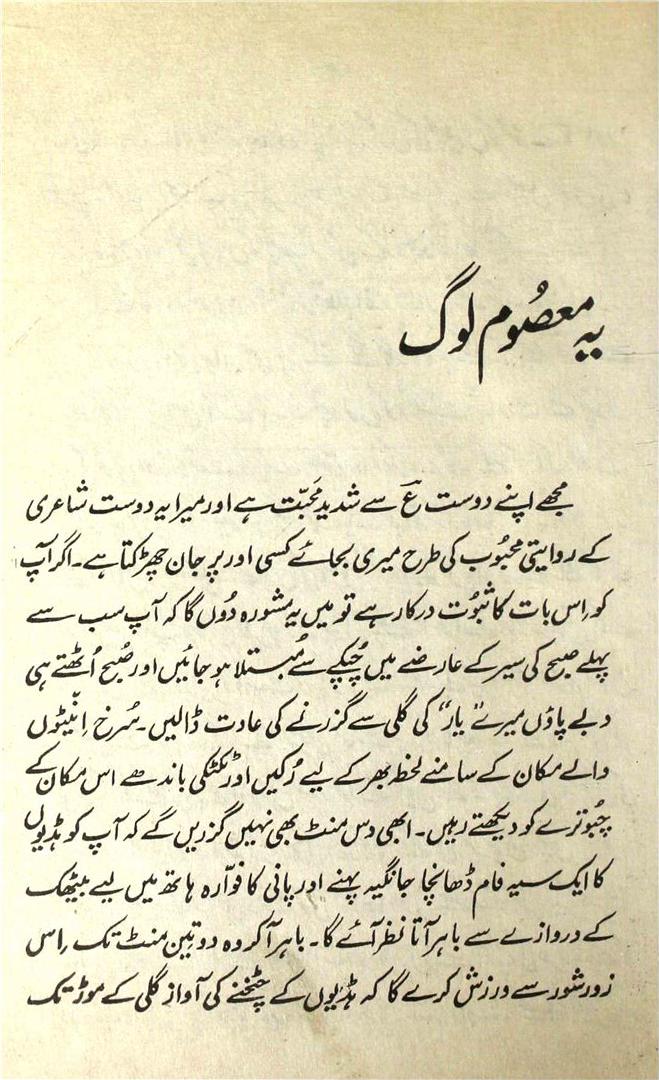 یہ معصُوم لوگ
مجھے اپنے دوست عؔ سے شدید مَحبّت ہے اور میرا یہ دوست شاعری
کے روایتی محبُوب کی طرح میری بجائے کسی اور پر جان چھڑکتا ہے۔ اگر آپ
کو اِس بات کا ثبُوت درکار ہے تو میں یہ مشورہ دُوں گا کہ آپ سب سے
پہلے صبح کی سیر کے عارضے میں چُپکے سے مُبتلا ہو جائیں اور صُبح اُٹھتے ہی
دبے پاؤں میرے ”یار“ کی گلی سے گزرنے کی عادت ڈالیں۔ سُرخ اینٹوں
والے مکان کے سامنے لحظہ بھر کے لیے رُکیں اور ٹکٹکی باندھے اس مکان کے
چبُوترے کو دیکھتے رہیں۔ ابھی دس منٹ بھی نہیں گزریں گے کہ آپ کو ہڈیوں
کا ایک سیہ فام ڈھانچا جانگیہ پہنے اور پانی کا فوّارہ ہاتھ میں لیے بیٹھک
کے دروازے سے باہر آتا نظر آئے گا۔ باہر آ کر وہ دو تین منٹ تک اِس
زور شور سے ورزش کرے گا کہ ہڈیوں کے چٹخنے کی آواز گلی کے موڑ تک